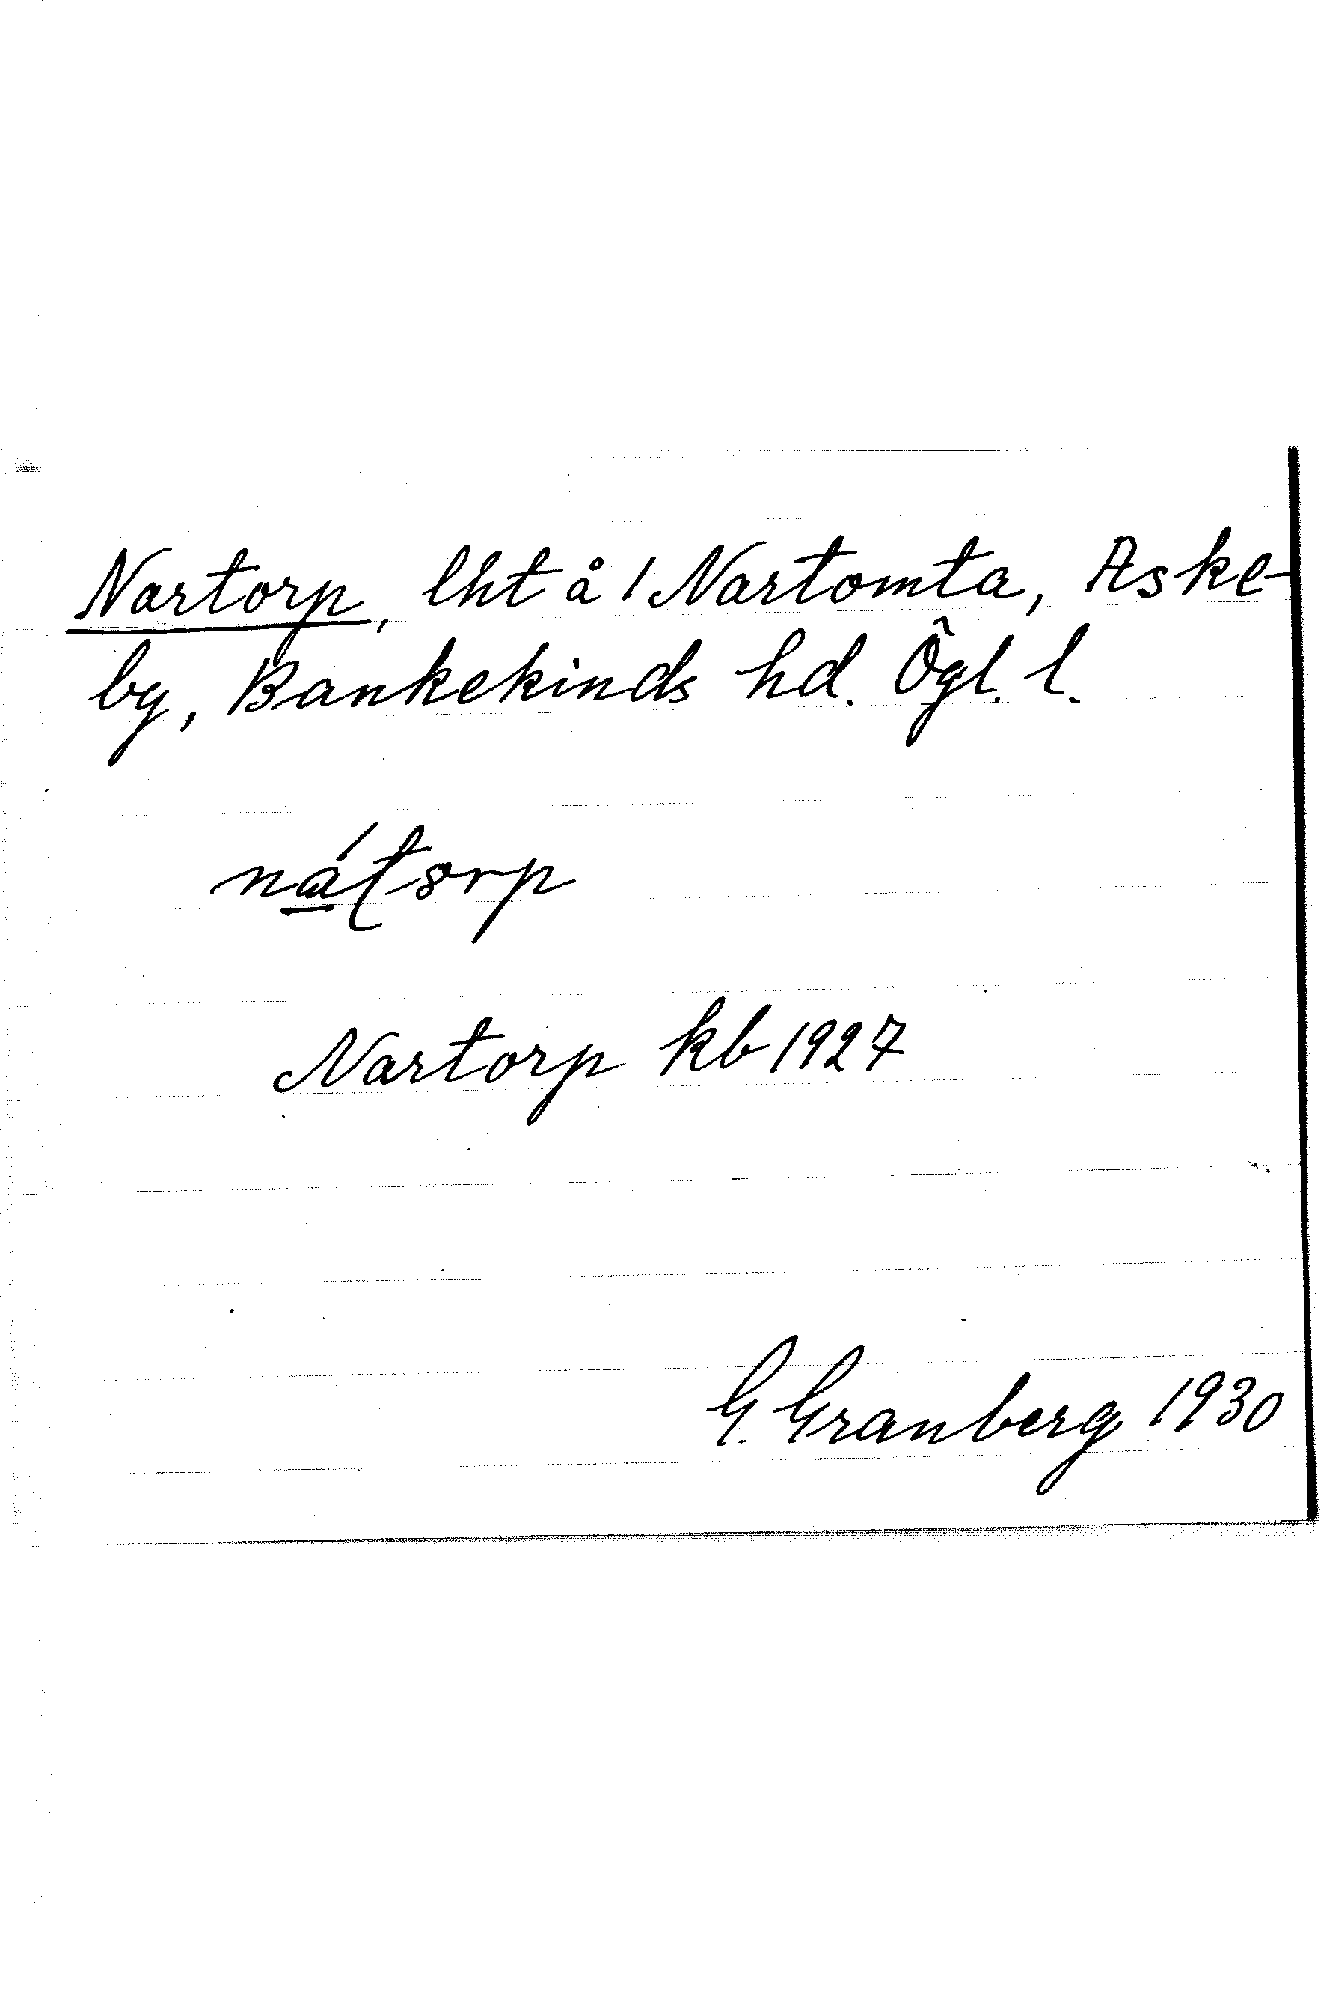 Nartorp, lht å 1 Nartomta, Aske-
by, Bankekinds hd. Ögl. l.
Nartorp kb 1927
G. Granberg 1930